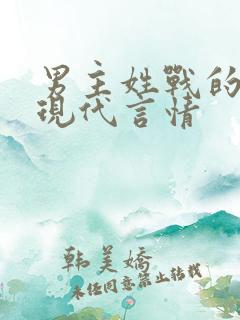 男主姓戰的
現代言情
韩美娇
未经同意禁止转载